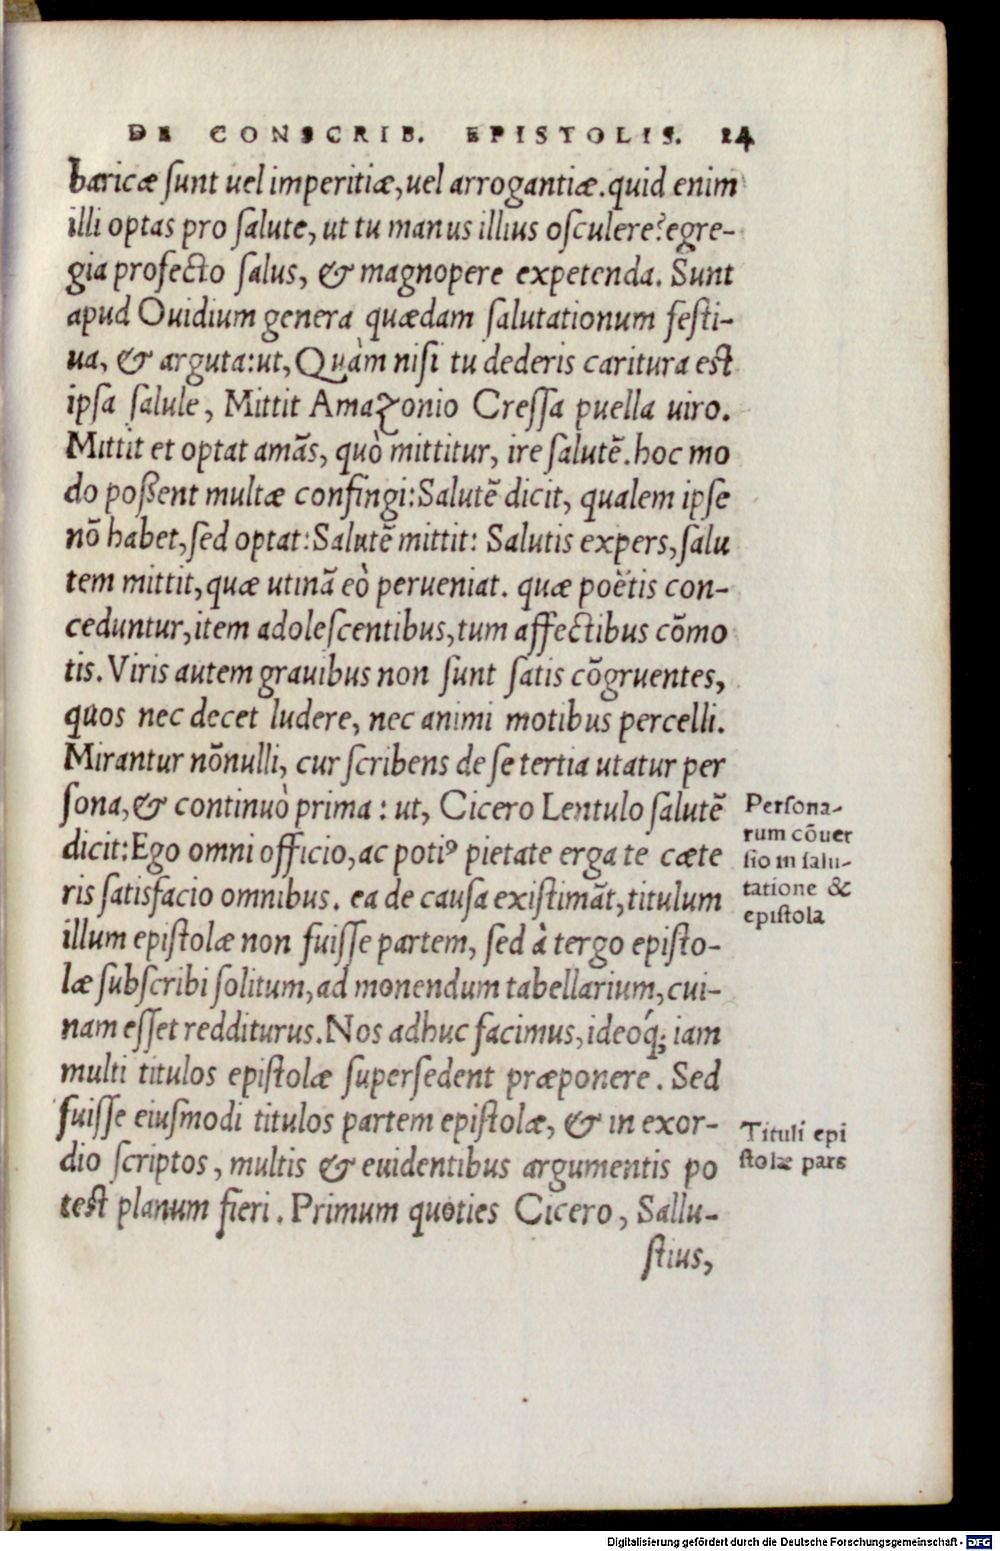 DE CONSCRIB. EPISTOLIS. 24
baricæ ſunt uel imperitiæ, uel arrogantiæ. quid enim
illi optas pro ſalute, ut tu manus illius oſculere? egre-
gia profecto ſalus, & magnopere expetenda. Sunt
apud Ouidium genera quædam ſalutationum feſti-
ua, & arguta: ut, Quàm niſi tu dederis caritura eſt
ipſa ſalule, Mittit Amazonio Creſſa puella uiro.
Mittit et optat amãs, quò mittitur, ire ſalutẽ. hoc mo
do poßent multæ confingi: Salutẽ dicit, qualem ipſe
nõ habet, ſed optat: Salutẽ mittit: Salutis expers, ſalu
tem mittit, quæ utinã eò perueniat. quæ poëtis con-
ceduntur, item adoleſcentibus, tum affectibus cõmo
tis. Viris autem grauibus non ſunt ſatis cõgruentes,
quos nec decet ludere, nec animi motibus percelli.
Mirantur nõnulli, cur ſcribens de ſe tertia utatur per
ſona, & continuò prima: ut, Cicero Lentulo ſalutẽ
dicit: Ego omni officio, ac potiꝰ pietate erga te cæte
ris ſatisfacio omnibus. ea de cauſa exiſtimãt, titulum
illum epiſtolæ non fuiſſe partem, ſed à tergo epiſto-
læ ſubſcribi ſolitum, ad monendum tabellarium, cui-
nam eſſet redditurus. Nos adhuc facimus, ideoq́; iam
multi titulos epiſtolæ ſuperſedent præponere. Sed
fuiſſe eiuſmodi titulos partem epiſtolæ, & in exor-
dio ſcriptos, multis & euidentibus argumentis po
teſt planum fieri. Primum quoties Cicero, Sallu-
ſtius,
Perſona-
rum cõuer
ſio in ſalu-
tatione &
epiſtola
Tituli epi
ſtolæ pars
Digitalisierung gefördert durch die Deutsche Forschungsgemeinschaft - DFG